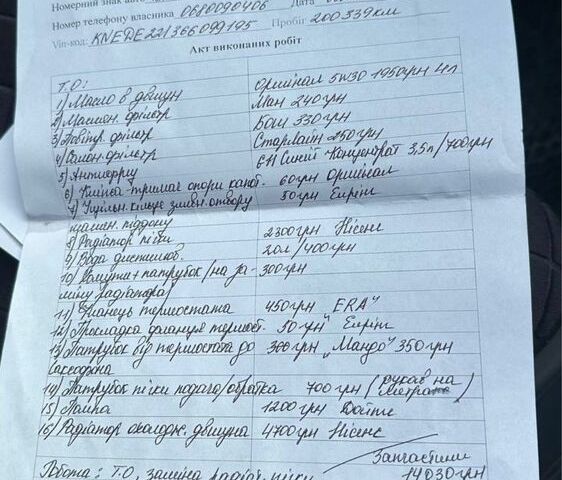 Номерний знак авто
Номер телефону власника 0680090406 Дата
Vin-код: KNEDE221366099195 Пробіг 200339км
Акт виконаних робіт
Т.О:
1) Масло в двигун Оригінал 5w30 1950грн 4л
2) Маслян. фільтр Ман 240грн
3) Повітр. фільтр Бош 330грн
4) Салон. фільтр Старлайн 250грн
5) Антифриз G11 Синій Концентрат 3,5л/700грн
6) Кліпса-тримач опори капот. 60грн Оригінал
7) Ущільн. кільце зливн. отвору 50грн Елрінг
маслян. піддону
8) Радіатор пічки 2300грн Нісенс
9) Вода дистильов. 20л/400грн
10) Хомути + патрубок/на за- 300грн
міну радіатора/
11) Фланець термостата 450грн „ERA"
12) Прокладка фланця термост. 50грн Елрінг
13) Патрубок від термостата до 300грн „Мандо" 350грн
14) Патрубок пічки подача/обратка 700грн (рукав на
15) Помпа 1200грн
16) Радіатор охолодж. двигуна 4700грн Нісенс
Запчастини
Робота: Т.О, заміна радіат. пічки 14030грн